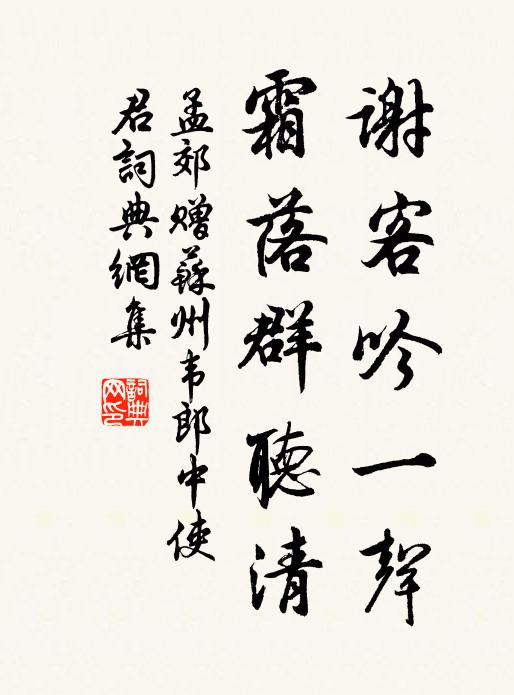 謝客吟一聲
霜落群聽清
孟郊贈蘇州韦郎中使
君詞典網集
詞典
网印